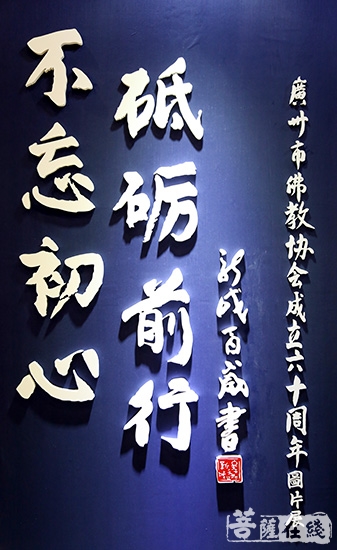 不忘初心
砥砺前行
新成百歲書
廣州市佛教协会成立六十周年圖片展
菩薩在綫